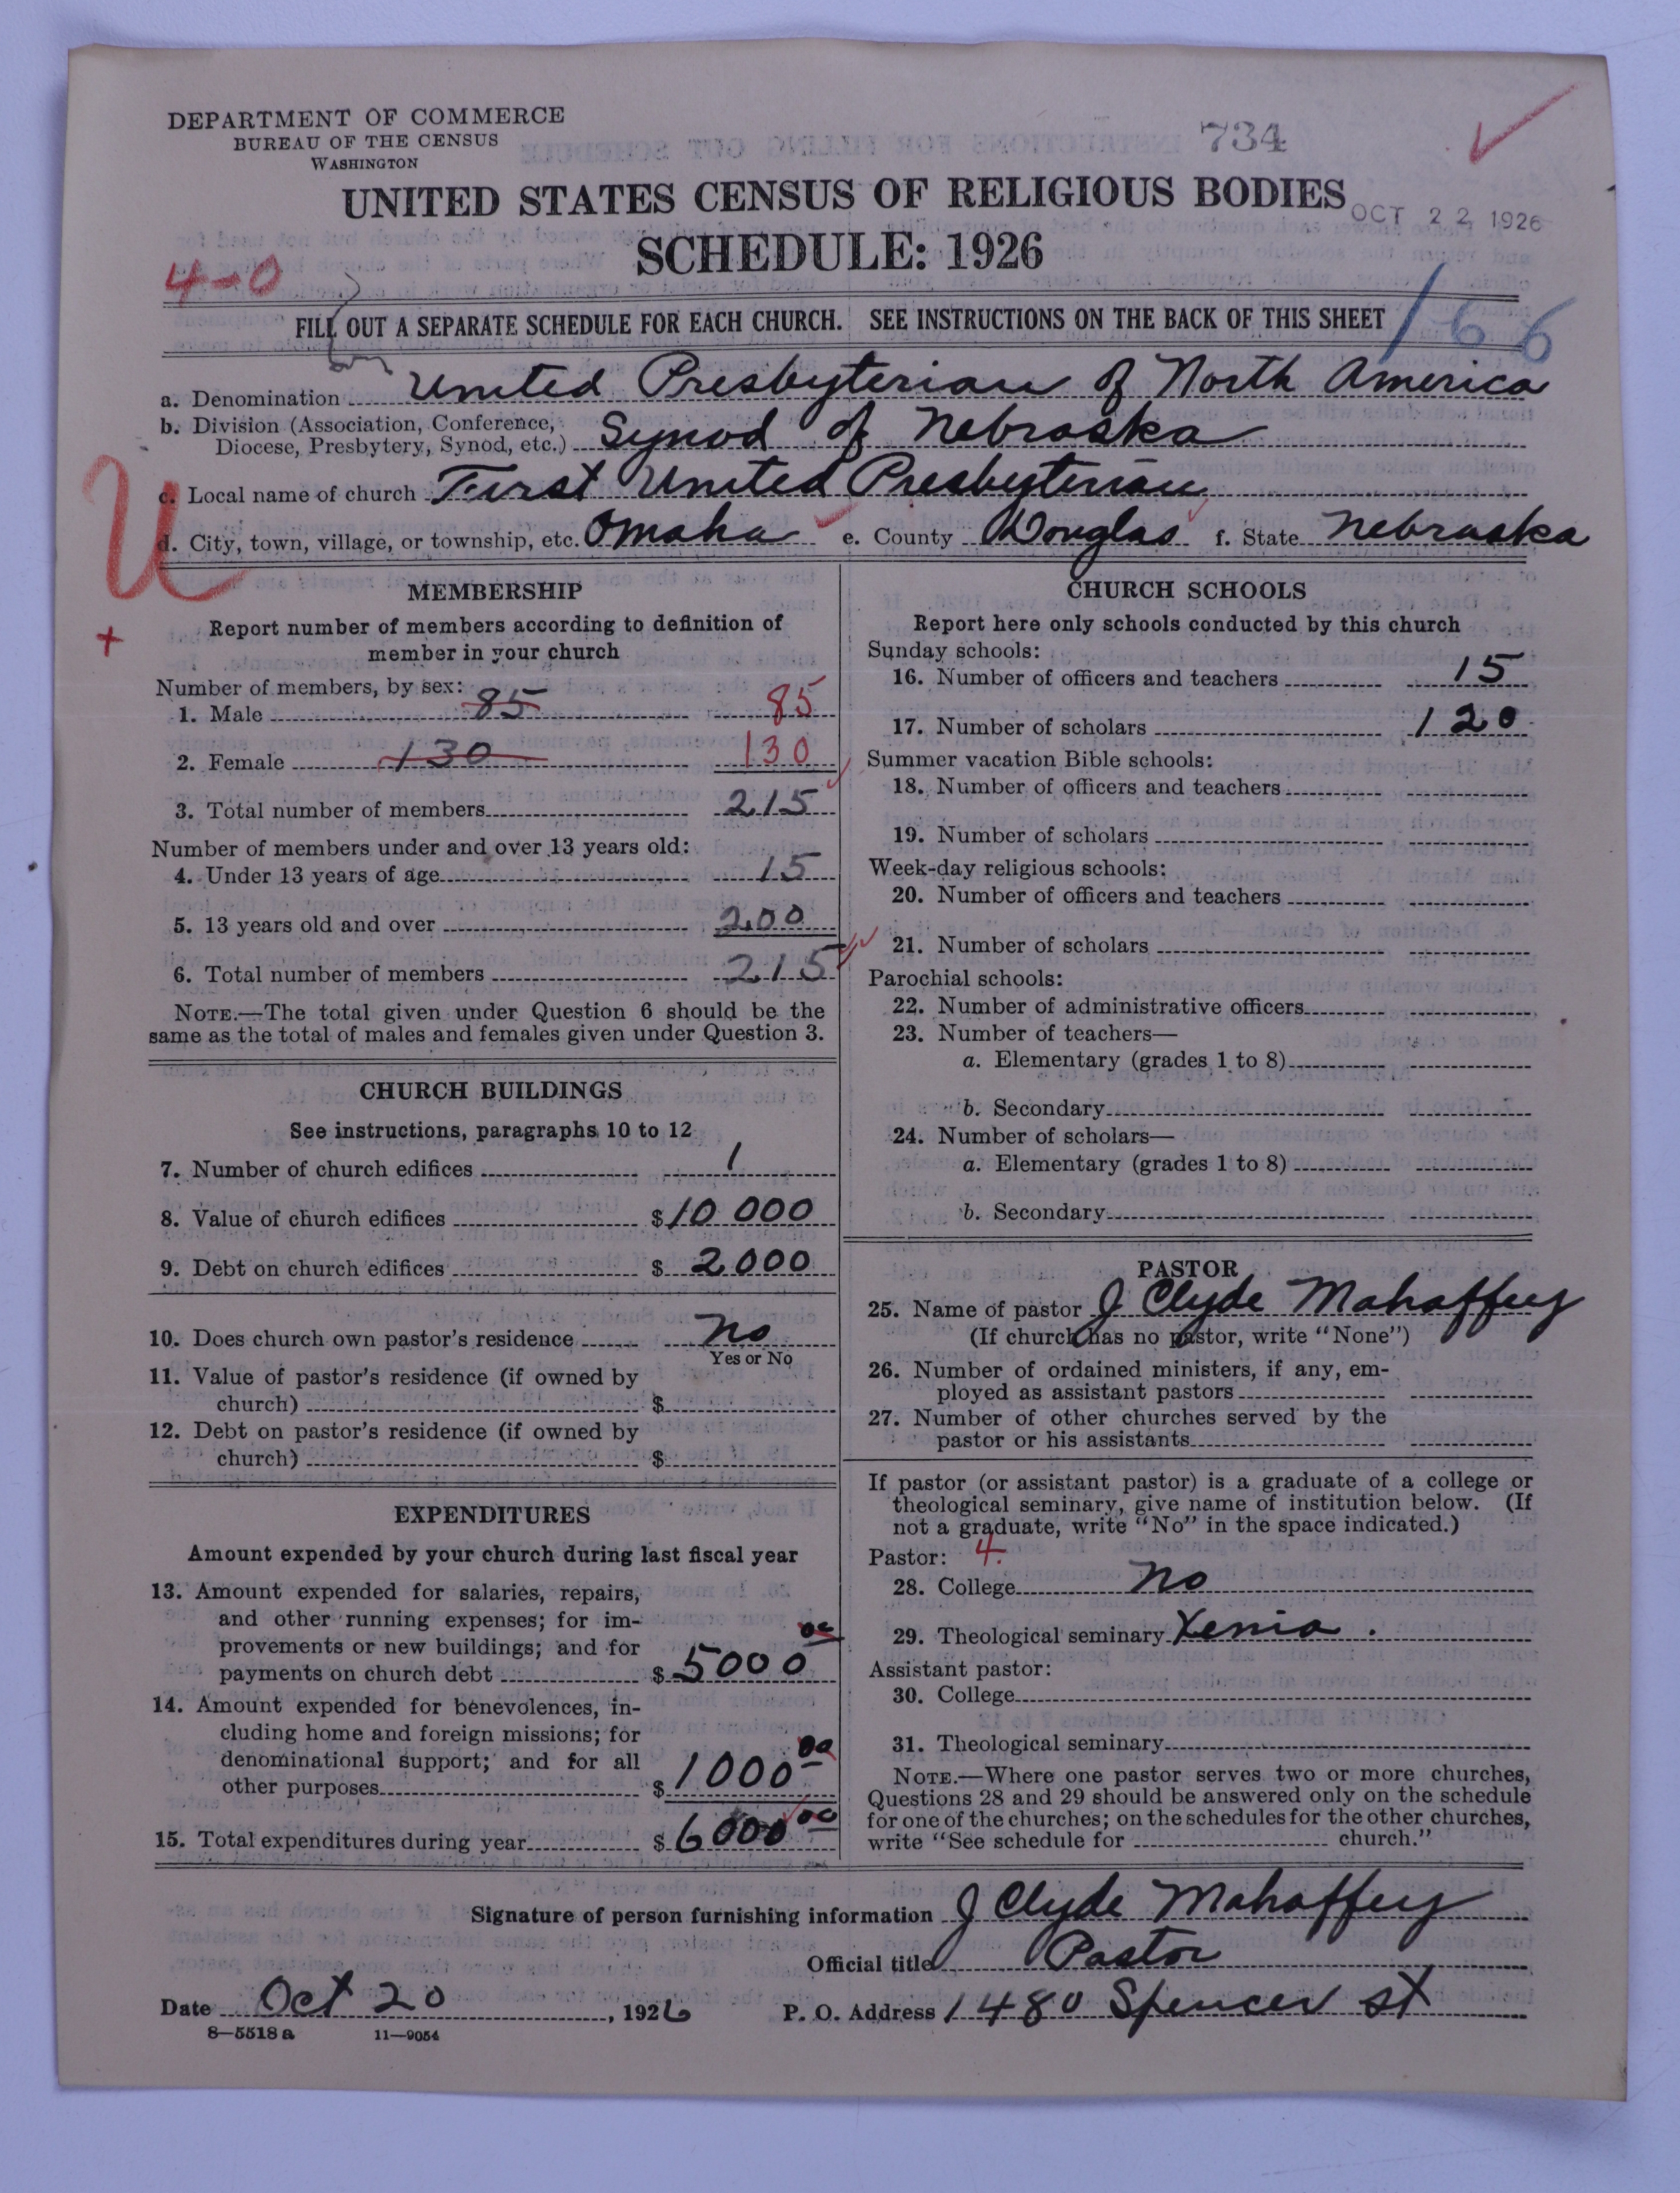 DEPARTMENT OF COMMERCE
BUREAU OF THE CENSUS
WASHINGTON
734
UNITED STATES CENSUS OF RELIGIOUS BODIES
OCT 22 1926
SCHEDULE: 1926
4-0
FILL OUT A SEPARATE SCHEDULE FOR EACH CHURCH. SEE INSTRUCTIONS ON THE BACK OF THIS SHEET
166
a. Denomination United Presbyterian of North America
b. Division (Association, Conference, Diocese, Presbytery, Synod, etc.) Synod of Nebraska
U
c. Local name of church First United Presbyterian
d. City, town, village, or township, etc. Omaha e. County Douglas f. State Nebraska
MEMBERSHIP
+
Report number of members according to definition of
member in your church
Number of members, by sex:
1. Male 85 85
2. Female 130 130
3. Total number of members 215
Number of members under and over 13 years old:
4. Under 13 years of age 15
5. 13 years old and over 200
6. Total number of members 215
NOTE.—The total given under Question 6 should be the
same as the total of males and females given under Question 3.
CHURCH BUILDINGS
See instructions, paragraphs 10 to 12
7. Number of church edifices 1
8. Value of church edifices $10 000
9. Debt on church edifices $ 2000
10. Does church own pastor's residence No
Yes or No
11. Value of pastor's residence (if owned by
church) $
12. Debt on pastor's residence (if owned by
church) $
EXPENDITURES
Amount expended by your church during last fiscal year
13. Amount expended for salaries, repairs,
and other running expenses; for im-
provements or new buildings; and for
payments on church debt $5000 00
14. Amount expended for benevolences, in-
cluding home and foreign missions; for
denominational support; and for all
other purposes $1000 00
15. Total expenditures during year $6000 00
CHURCH SCHOOLS
Report here only schools conducted by this church
Sunday schools:
16. Number of officers and teachers 15
17. Number of scholars 120
Summer vacation Bible schools:
18. Number of officers and teachers
19. Number of scholars
Week-day religious schools:
20. Number of officers and teachers
21. Number of scholars
Parochial schools:
22. Number of administrative officers
23. Number of teachers—
a. Elementary (grades 1 to 8)
b. Secondary
24. Number of scholars—
a. Elementary (grades 1 to 8)
b. Secondary
PASTOR
25. Name of pastor J Clyde Mahaffey
(If church has no pastor, write "None")
26. Number of ordained ministers, if any, em-
ployed as assistant pastors
27. Number of other churches served by the
pastor or his assistants
If pastor (or assistant pastor) is a graduate of a college or
theological seminary, give name of institution below. (If
not a graduate, write "No" in the space indicated.)
Pastor: 4.
28. College No
29. Theological seminary Xenia .
Assistant pastor:
30. College
31. Theological seminary
NOTE.—Where one pastor serves two or more churches,
Questions 28 and 29 should be answered only on the schedule
for one of the churches; on the schedules for the other churches,
write "See schedule for church."
Signature of person furnishing information J Clyde Mahaffey
Official title Pastor
Date Oct 20, 1926 P. O. Address 1480 Spencer st
8—5518 a 11—9054